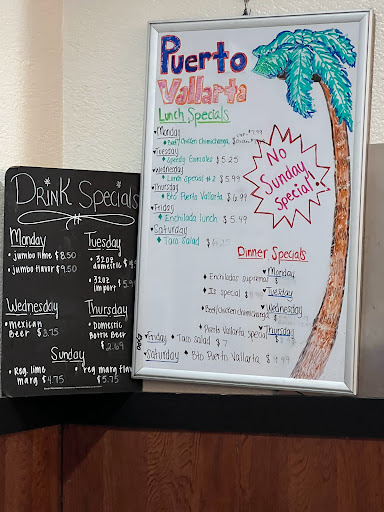 Drink Specials
Monday
• jumbo lime $8.50
• jumbo flavor $9.50
Tuesday
• 32oz domestic
• 32oz import $5.
Wednesday
• Mexican Beer $3.75
Thursday
• Domestic Bottle Beer $2.69
Sunday
• Reg. lime marg $4.75
• reg marg flav $5.75
Puerto Vallarta
Lunch Specials
• Monday
♦ Beef/Chicken Chimichanga
• Tuesday
♦ Speedy Gonzales $5.25
• Wednesday
♦ Lunch Special #2 $5.99
• Thursday
♦ Bto Puerto Vallarta $6.99
• Friday
♦ Enchilada lunch $5.49
• Saturday
♦ Taco Salad $6.25
No Sunday Special!
Dinner Specials
♥ Monday
♦ Enchiladas supremas $
♥ Tuesday
special $
♥ Wednesday
♦ Beef/Chicken Chimichanga
♥ Thursday
♦ Puerto Vallarta special $
• Friday ♦ Taco salad $7
• Saturday ♦ Bto Puerto Vallarta $